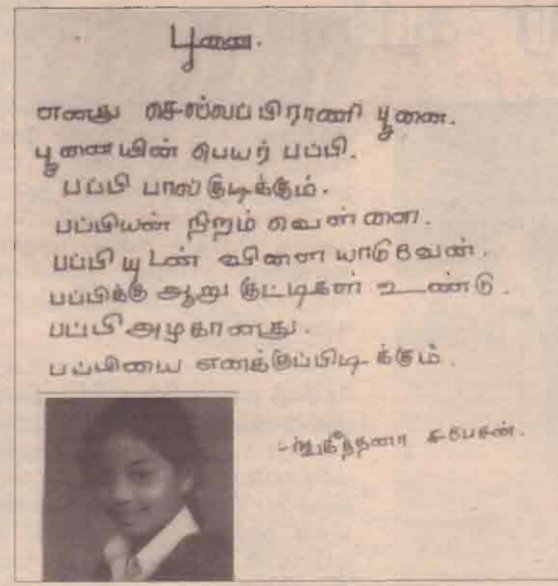 பூனை.
எனது செல்லப்பிராணி பூனை.
பூனையின் பெயர் பப்பி.
பப்பி பால் குடிக்கும்.
பப்பியன் நிறம் வெள்ளை.
பப்பியுடன் விளையாடுவேன்.
பப்பிக்கு ஆறு குட்டிகள் உண்டு.
பப்பி அழகானது.
பப்பியை எனக்குப்பிடிக்கும்.